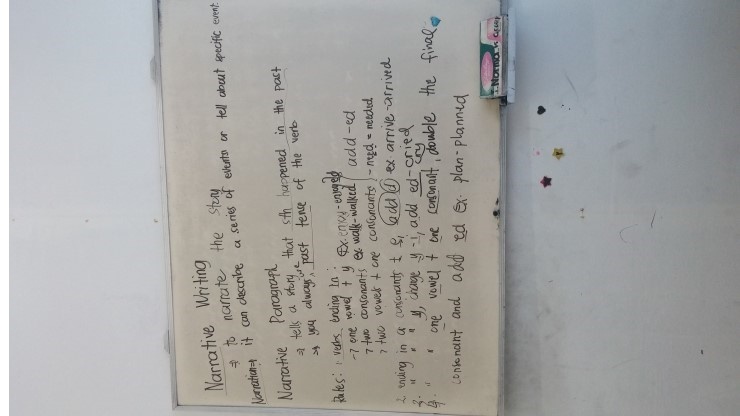 Narrative Writing
⇒ to narrate the story
Narration ⇒ it can describe a series of events or tell about specific event.
Narrative Paragraph
⇒ tells a story that sth happened in the past
⇒ you always use past tense of the verb
Rules: 1 verbs ending in:
→ one vowel + y ex. enjoy-enjoyed
→ two consonants ex walk-walked
→ two vowels + one consonants - need = needed
add-ed
2 ending in a consonants + e, add (d) ex arrive-arrived
3. " " " y, change y -i, add ed-cried
cry
4. " " one vowel + one consonant, double the final
consonant and add ed ex. plan-planned